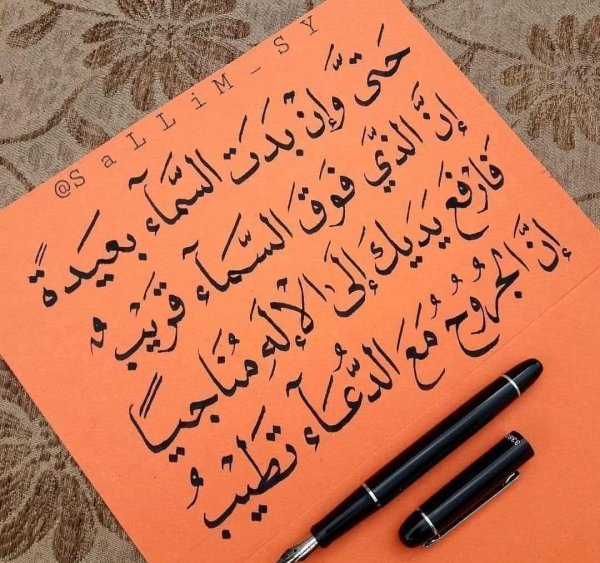 @SaLLiM_SY
حَتىَّ وَّإِنْ بَدَتِ السَّمآء بعيدةً
إنَّ الَّذي فَوقَ السَّمآءِ قَريْبُ
فَارْفَع يَدَيكَ إِلَى الْإلَهِ مُنَاجياً
إنَّ الجُروُحَ مَعَ الدُّعَآءِ تَطيْبُ
335